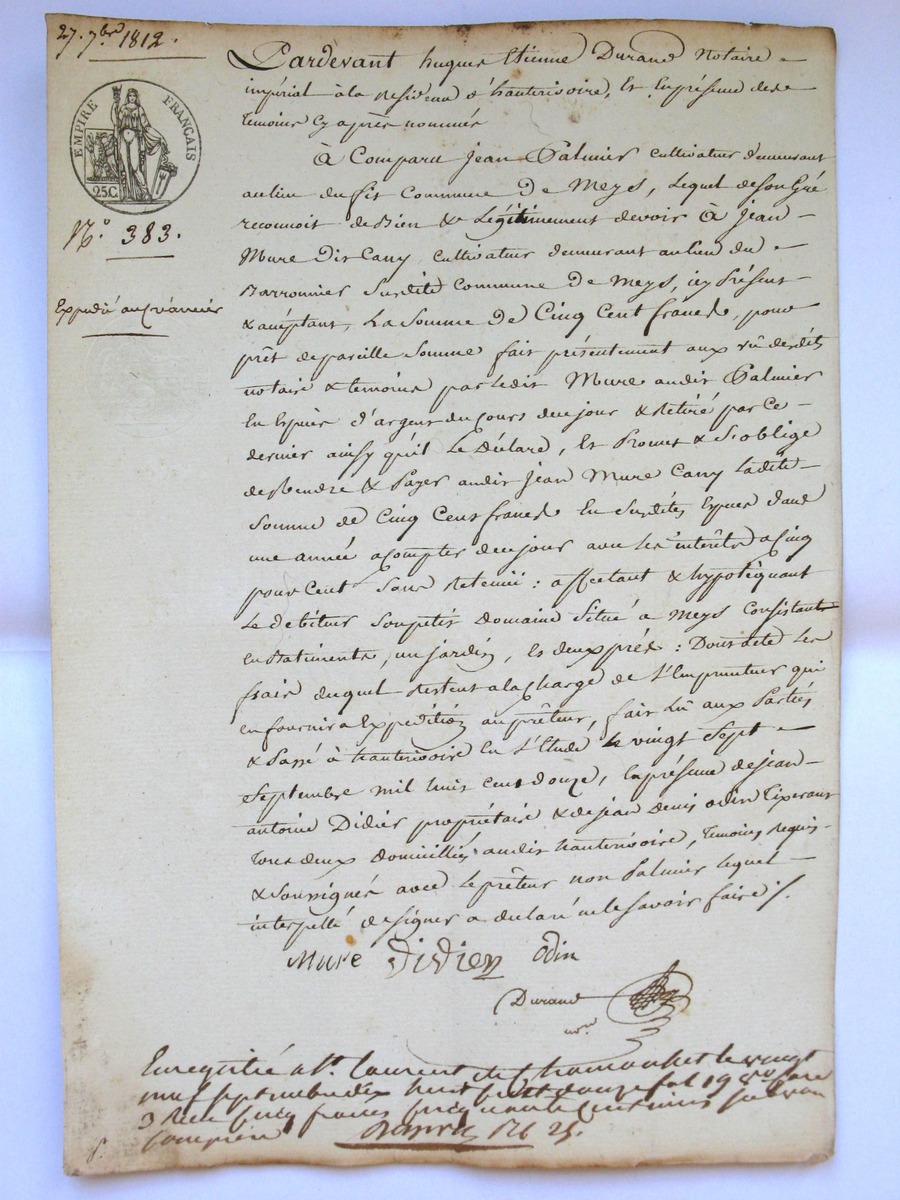 27. 7bre 1812.
EMPIRE FRANÇAIS
25C.
N.o 383.
Expédié au créancier
Pardevant hugues Etienne Durand Notaire
impérial à la residence d'hauterivoire, Et En présence des
temoins Cy après nommés
À Comparu Jean Palmier cultivateur demeurant
au lieu du fit Commune De Meys, Lequel de son Gré
reconnoit de Bien & Légitimement devoir À Jean
Mure Dit Cany cultivateur demeurant au lieu du
Barronnier Susdite Commune De Meys, icy Présent
& acceptant, La Somme De Cinq Cent francs, pour
prêt de pareille Somme fait présentement aux vû desdits
notaire & temoins par ledit Mure audit Palmier
En Espèces d'argent du Cours de ce jour & Retiré par Ce
dernier ainsy qu'il Le Déclare, Et Promet & S'oblige
de Rendre & Payer audit Jean Mure Cany Ladite
Somme De Cinq Cent francs En Susdites Espèces dans
une année a compter de ce jour avec les intérêts a Cinq
pour Cent Sans Retenue : affectant & hypotéquant
Le débiteur Son petit Domaine Situé a Meys Consistant
en Batiments, un jardin, Et deux prés : Dont acte Les
frais duquel Restent a la Charge De L'Emprunteur qui
en fournira Expédition au prêteur, fait Lû aux Parties
& Passé à hauterivoire En L'Etude Le vingt Sept
Septembre mil huit cent douze, En présence de jean
antoine Didier propriétaire & de jean Denis odin Tixerant
Tous deux Domiciliés audit hauterivoire, Temoins Requis
& Soussignés avec Le prêteur non Palmier lequel
interpellé de Signer a declaré ne le Savoir faire ./.
Mure Didier Odin
Durand
nre
Enregistré a St. Laurent de Chamousset le vingt
neuf septembre dix huit cent douze fol 19 Vo Case
3 Reçu cinq francs cinquante centimes subvon
comprise